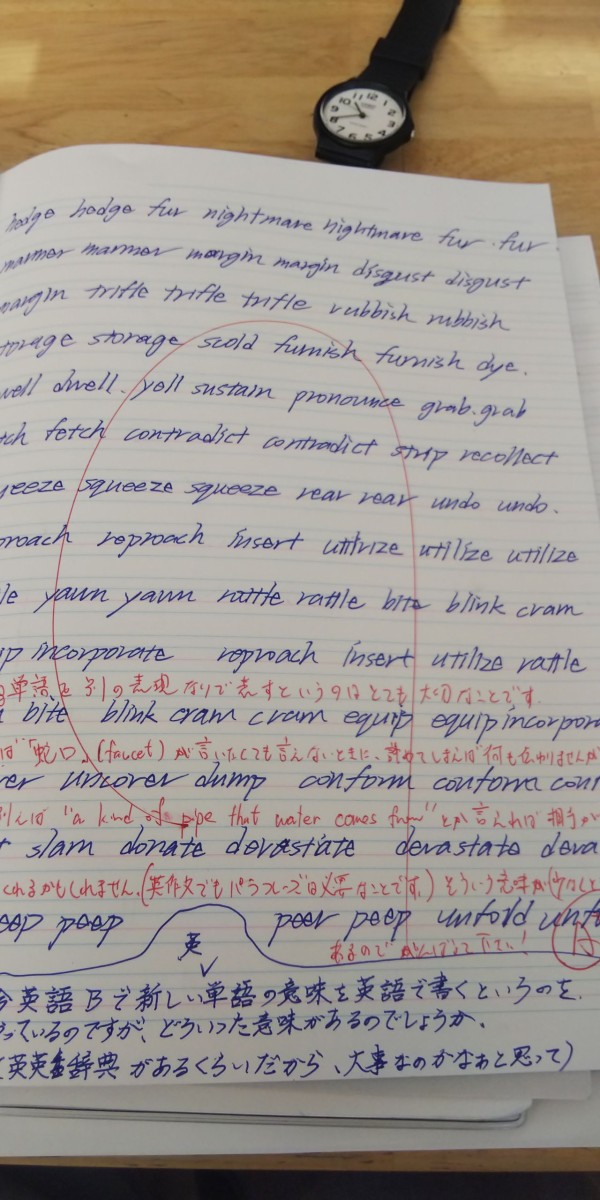 hedge hedge fur nightmare nightmare fur fur
manner manner margin margin disgust disgust
margin trifle trifle trifle rubbish rubbish
storage storage scold furnish furnish dye.
dwell dwell. yell sustain pronounce grab. grab
fetch fetch contradict contradict strip recollect
squeeze squeeze squeeze rear rear undo undo.
reproach reproach insert utilize utilize utilize
yawn yawn rattle rattle bite blink cram
incorporate reproach insert utilize rattle
単語を別の表現なりで表すというのはとても大切なことです。
bite blink cram cram equip equip incorpora
ば「蛇口」(faucet)が言いたくても言えないときに、諦めてしまえば何も伝わりませんが
uncover dump conform conform con
例えば "a kind of pipe that water comes from" とか言えれば相手が
slam donate devastate devastate deva
くれるかもしれません。(英作文でもパラフレーズは必要なことです。) そういう意味が
peep peep peer peep unfold unfo
あるのでがんばって下さい!
英
今英語Bで新しい単語の意味を英語で書くというのを、
っているのですが、どういった意味があるのでしょうか。
(英英辞典があるくらいだから、大事なのかなぁと思って)
12
1
2
3
4
5
6
7
8
9
10
11